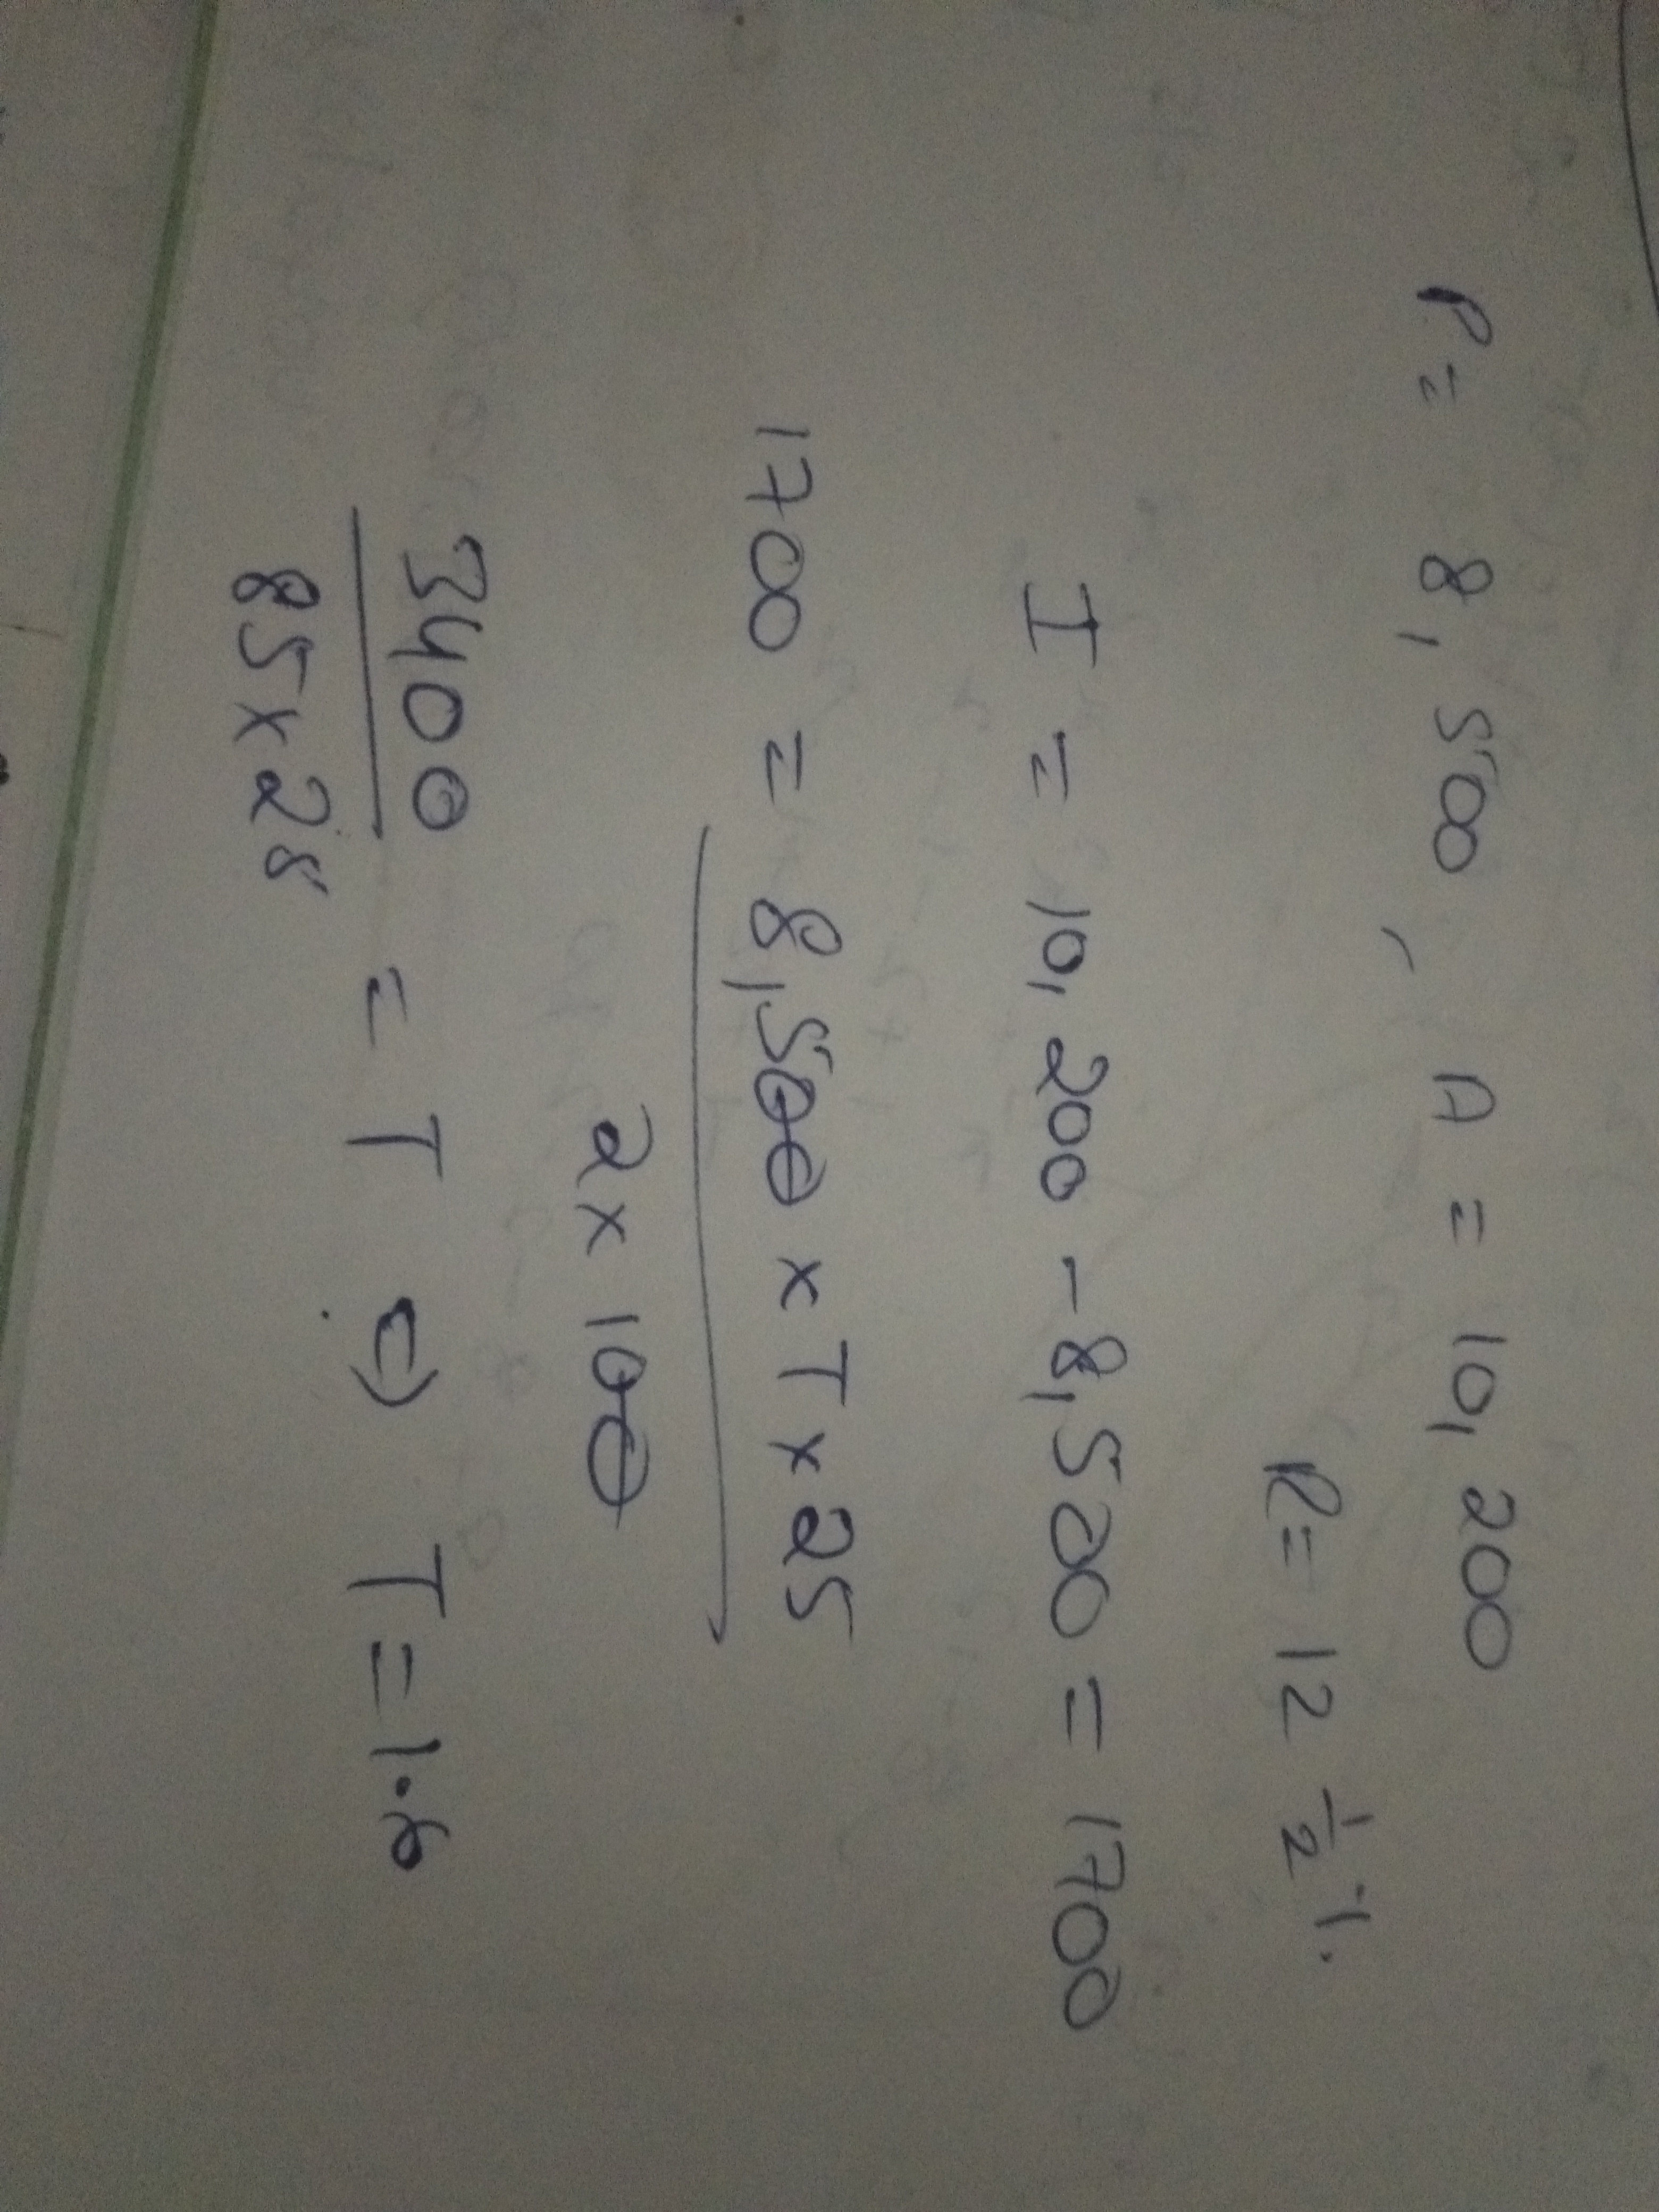 P = 8,500, A = 10,200
R = 12 1/2 %.
I = 10,200 - 8,500 = 1700
1700 = 8,500 x T x 25
2 x 100
3400 = T ⇒ T = 1.6
85 x 25